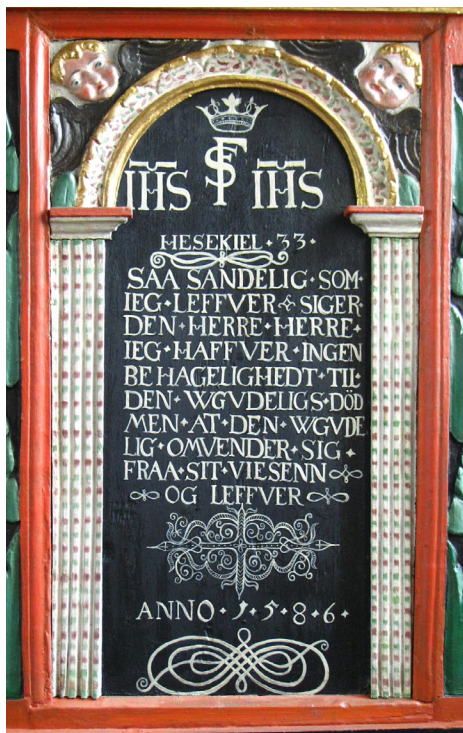 FS
IHS IHS
HESEKIEL · 33 ·
SAA SANDELIG · SOM ·
IEG · LEFFVER · SIGER ·
DEN · HERRE · HERRE ·
IEG · HAFFVER · INGEN
BEHAGELIGHEDT · TIL ·
DEN · WGVDELIGS · DÖD
MEN · AT · DEN · WGVDE
LIG · OMVENDER · SIG ·
FRAA · SIT · VIESENN
OG LEFFVER
ANNO · 1 · 5 · 8 · 6 ·